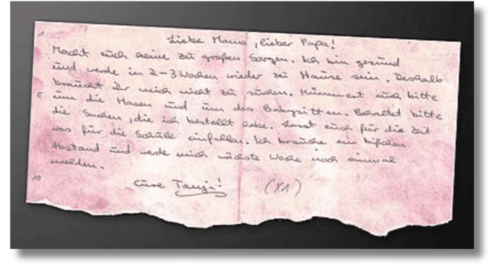 1 Liebe Mama, lieber Papa!
Macht euch keine zu großen Sorgen. Ich bin gesund
und werde in 2-3 Wochen wieder zu Hause sein. Deshalb
braucht ihr mich nicht zu suchen. Kümmert euch bitte
5 um die Hasen und um das Babysitten. Behaltet bitte
die Sachen, die ich bestellt habe. Lasst euch für die Zeit
was für die Schule einfallen. Ich brauche ein bißchen
Abstand und werde mich nächste Woche noch einmal
melden.
10 eure Tanja! (X1)